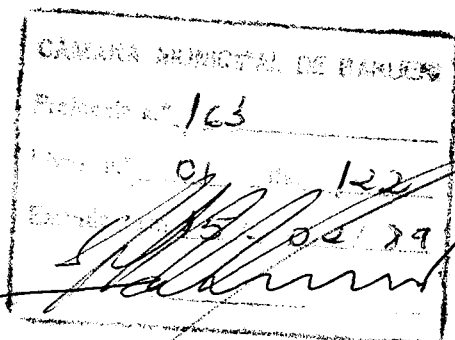 CÂMARA MUNICIPAL DE BARUERI
Protocolo n.º 163
Livro n.º 01 122
Entrada 15 - 02 / 89